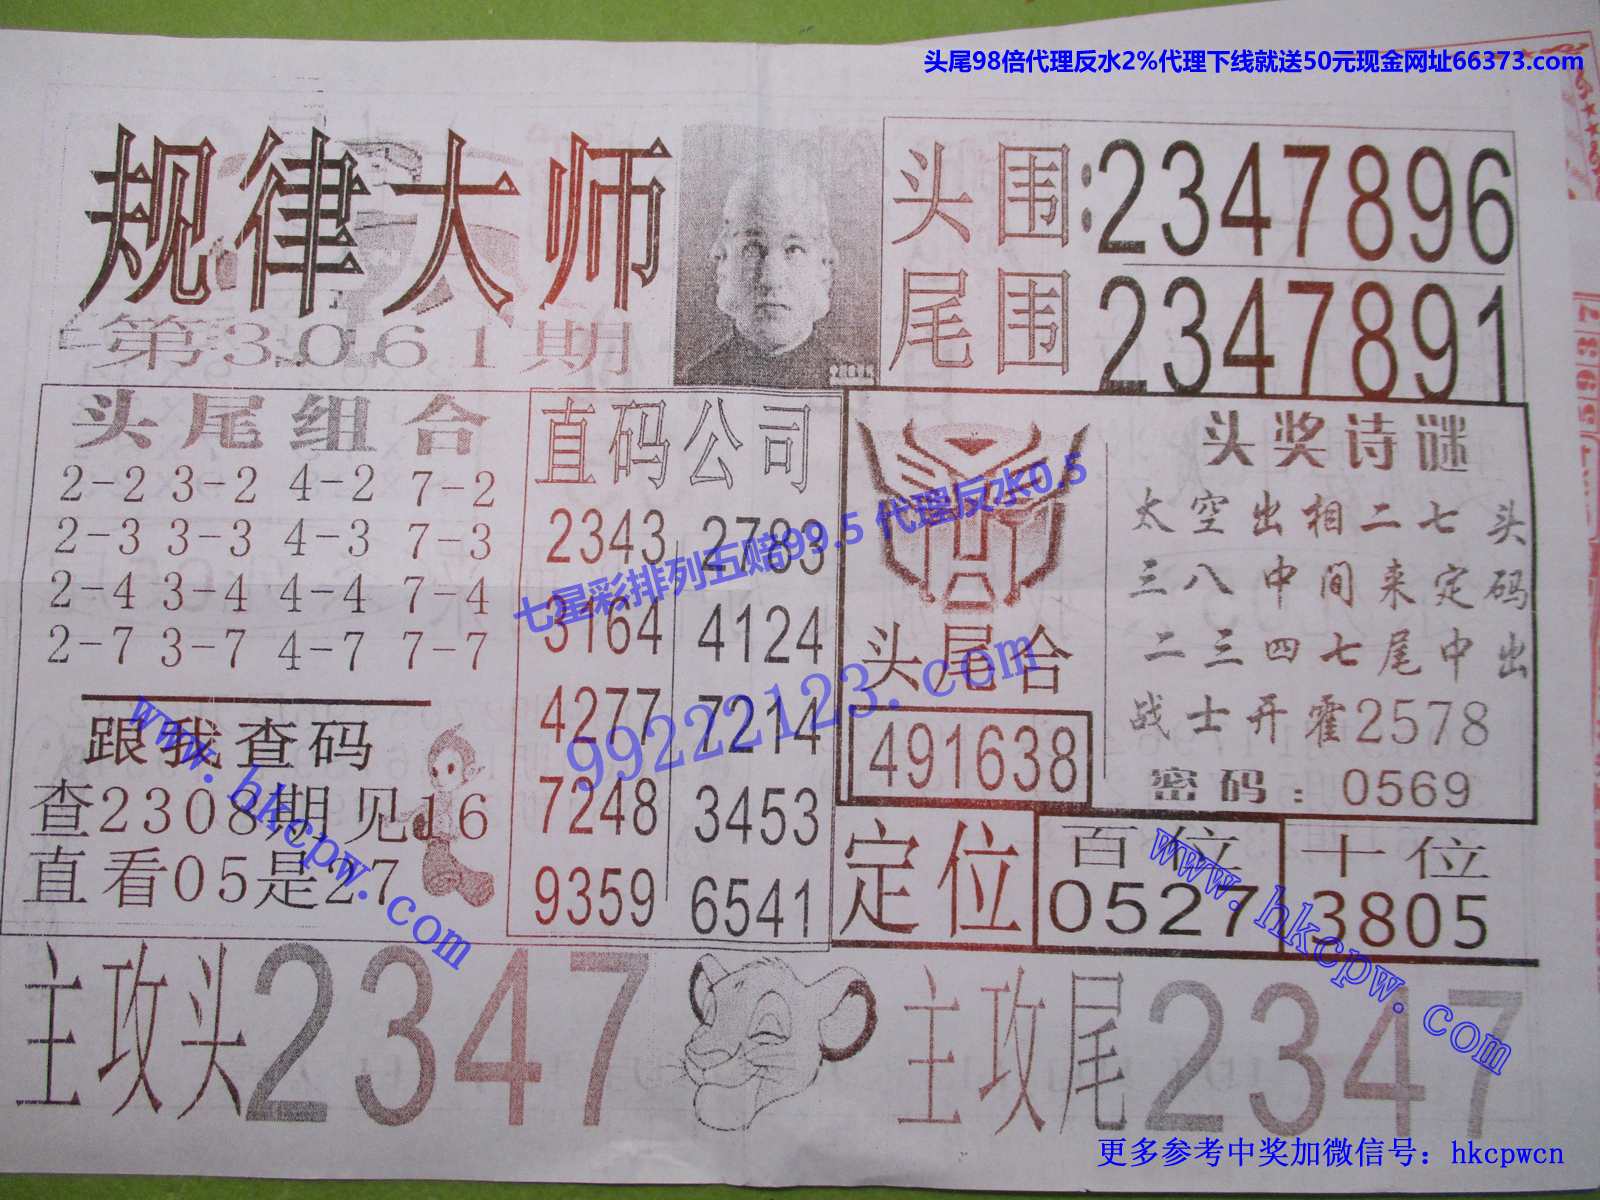 头尾98倍代理反水2%代理下线就送50元现金网址66373.com
规律大师
第3061期
头围:2347896
尾围 2347891
头尾组合
2-2 3-2 4-2 7-2
2-3 3-3 4-3 7-3
2-4 3-4 4-4 7-4
2-7 3-7 4-7 7-7
跟我查码
查2308期见16
直看05是27
直码公司
2343 2783
3164 4124
4277 7214
7248 3453
9359 6541
七星彩排列五赔99.5 代理反水0.5
99222123.com
头尾合
491638
头奖诗谜
太空出相二七头
三八中间来定码
二三四七尾中出
战士开霍2578
密码:0569
定位
百位
0527
十位
3805
www.hkcpw.com
www.hkcpw.com
主攻头2347
主攻尾2347
更多参考中奖加微信号：hkcpwcn